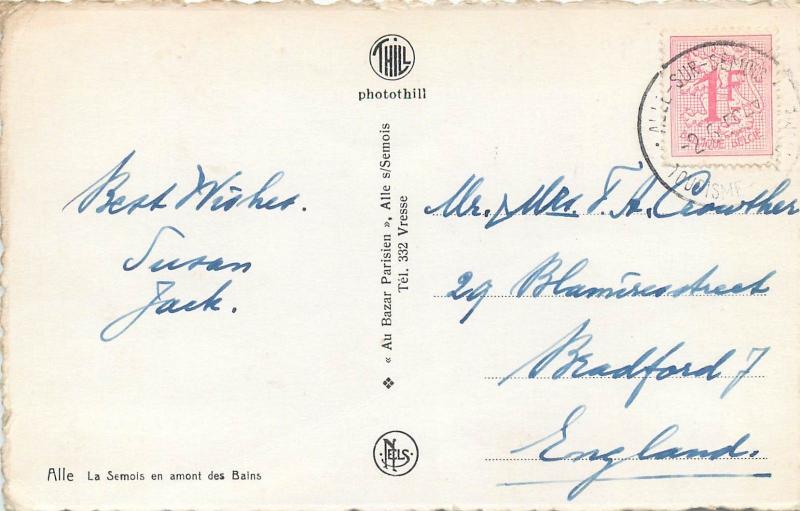 THILL
photothill
Best Wishes.
Susan
Jack.
« Au Bazar Parisien », Alle s/Semois
Tél. 332 Vresse
Mr. Mrs. T. A. Crowther
29 Blamires street
Bradford 7
England.
1F
BELGIQUE BELGIE
ALLE-SUR-SEMOIS
TOURISME
NELS
Alle La Semois en amont des Bains